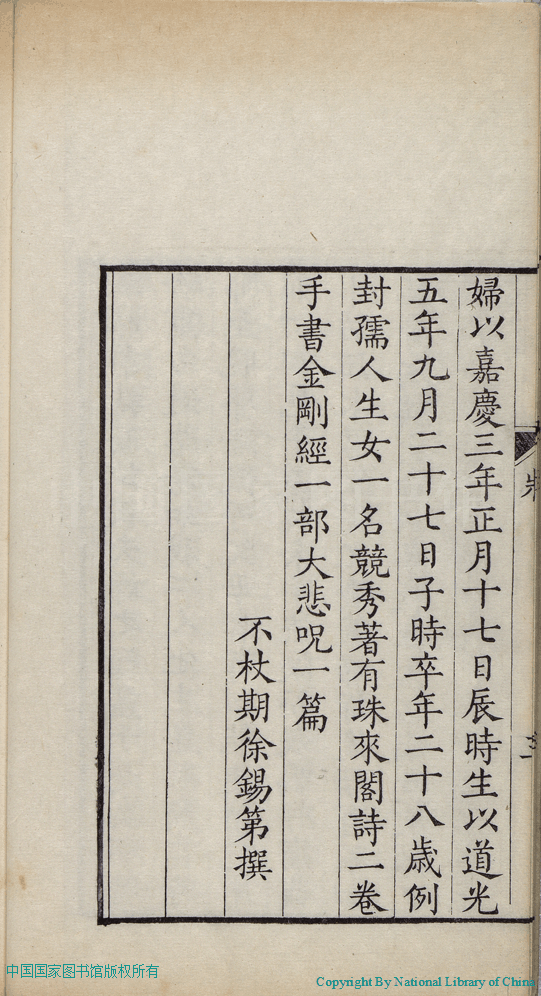 婦以嘉慶三年正月十七日辰時生以道光
五年九月二十七日子時卒年二十八歲例
封孺人生女一名競秀著有珠來閣詩二卷
手書金剛經一部大悲呪一篇
不杖期徐錫第撰
中国国家图书馆版权所有
Copyright By National Library of China